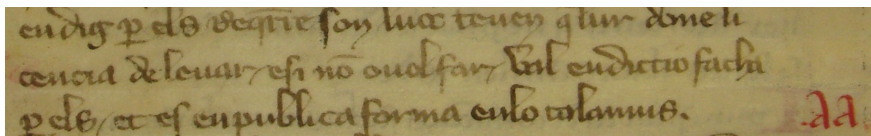 endig p els deqtie son luoc teuen q lur done li
cencia de leuar, e si nõ o uol far, Val endiccio facha
p els, et es en publica forma en lo talamus. AA